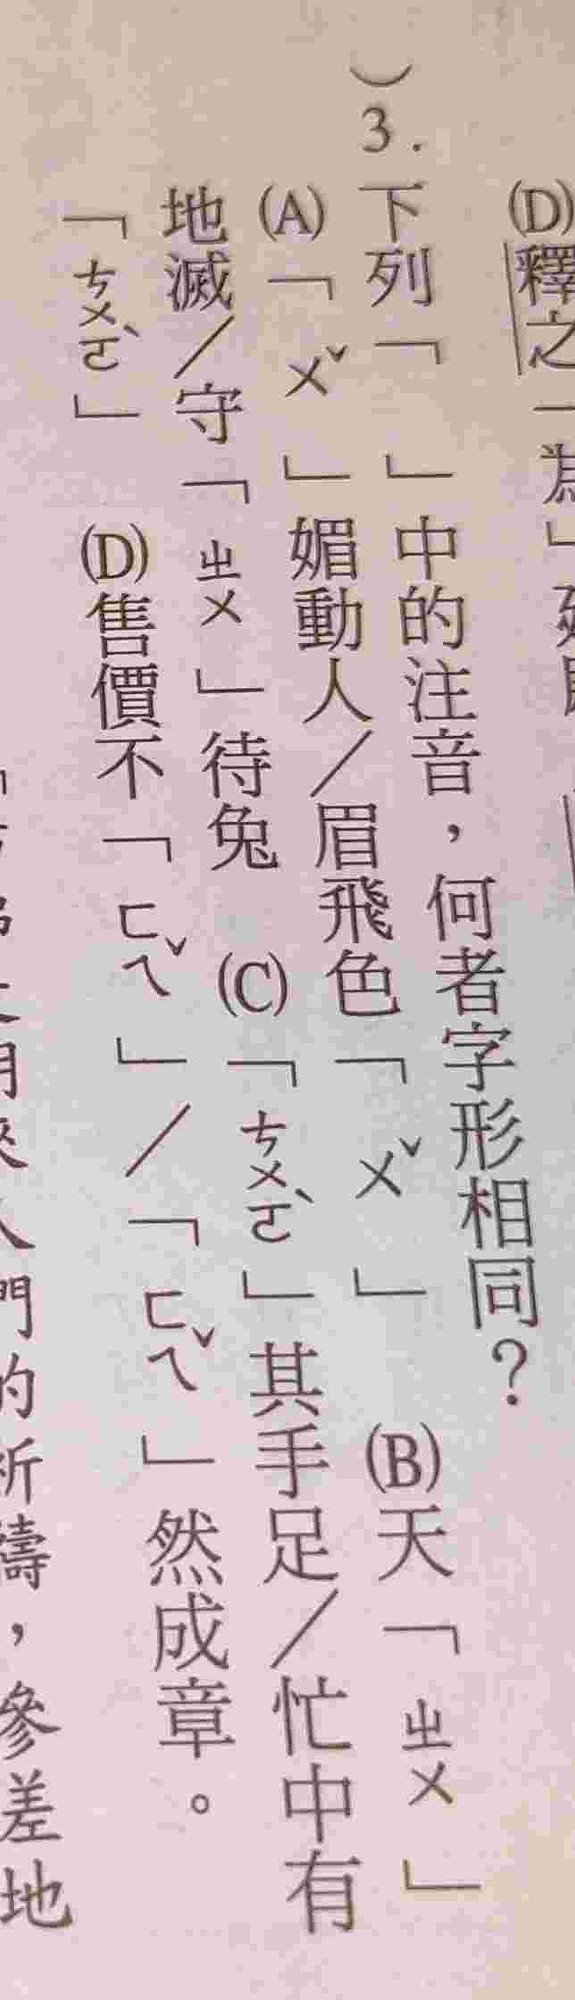 (D)釋之一為」
）3. 下列「　」中的注音，何者字形相同？
(A)「ㄨˇ」媚動人／眉飛色「ㄨˇ」　(B)天「ㄓㄨ」
地滅／守「ㄓㄨ」待兔　(C)「ㄘㄨㄛˋ」其手足／忙中有
「ㄘㄨㄛˋ」　(D)售價不「ㄈㄟˇ」／「ㄈㄟˇ」然成章。
門的祈禱，參差地